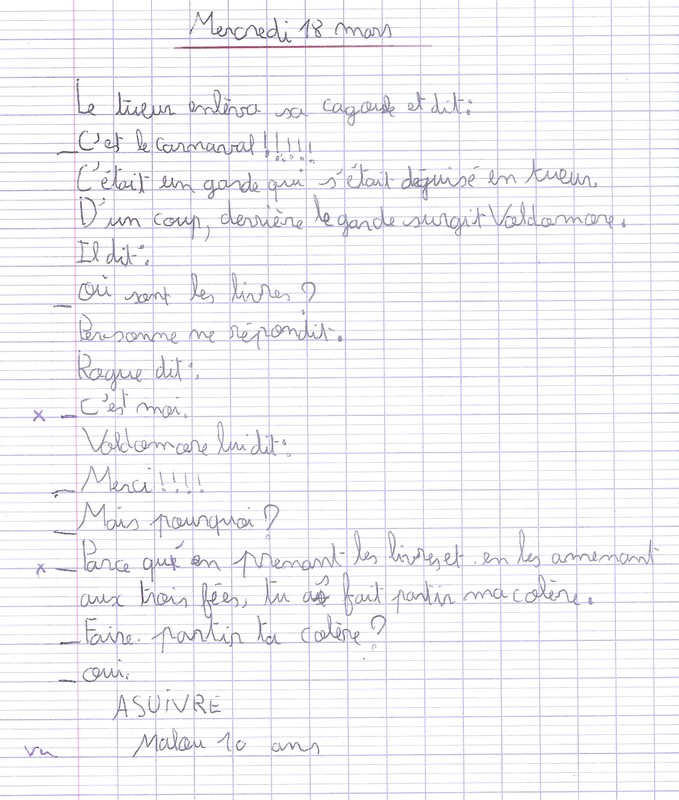 Mercredi 18 mars
Le tueur enlèva sa cagoule et dit:
_ C'est le carnaval!!!!!
C'était un garde qui s'était déguisé en tueur.
D'un coup, derrière le garde surgit Voldomore.
Il dit:
_ Où sont les livres?
Personne ne répondit.
Rogue dit:
x _ C'est moi.
Voldomore lui dit:
_ Merci!!!!
_ Mais pourquoi?
x _ Parce qu'en prenant les livres et en les amenant
aux trois fées, tu as fait partir ma colère.
_ Faire partir ta colère?
_ oui.
A SUIVRE
Malou 10 ans
vu